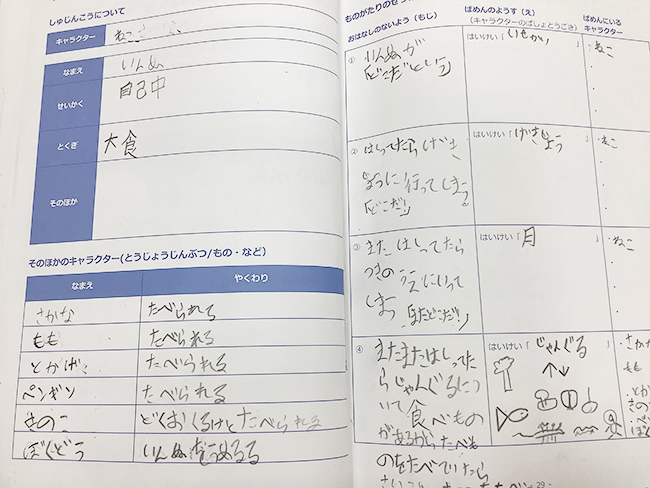 しゅじんこうについて
キャラクター
ねこ
なまえ
いんぬ
せいかく
自己中
とくぎ
大食
そのほか
そのほかのキャラクター(とうじょうじんぶつ/もの・など)
なまえ
やくわり
さかな
たべられる
もも
たべられる
とかげ
たべられる
ペンギン
たべられる
きのこ
どくおくるけとたべられる
ぼくどう
いんぬ
ものがたりの
おはなしのないよう(もじ)
ばめんのようす(え)
(キャラクターのばしょとうごき)
ばめんにいる
キャラクター
①
いんぬが
「どこだという」
はいけい「
」
・ねこ
②
はしってたらげき
ように行ってしまう
「どこだ!」
はいけい「
」
・ねこ
③
またはしってたら
つきの
にいって
しまう
「またどこだ!」
はいけい「月
」
・ねこ
④
またまたはしってた
らじゃんぐるにつ
いて食べもの
があるからたべも
のをたべていたら
はいけい「じゃんぐる
」
・さか
もも
・とか
29